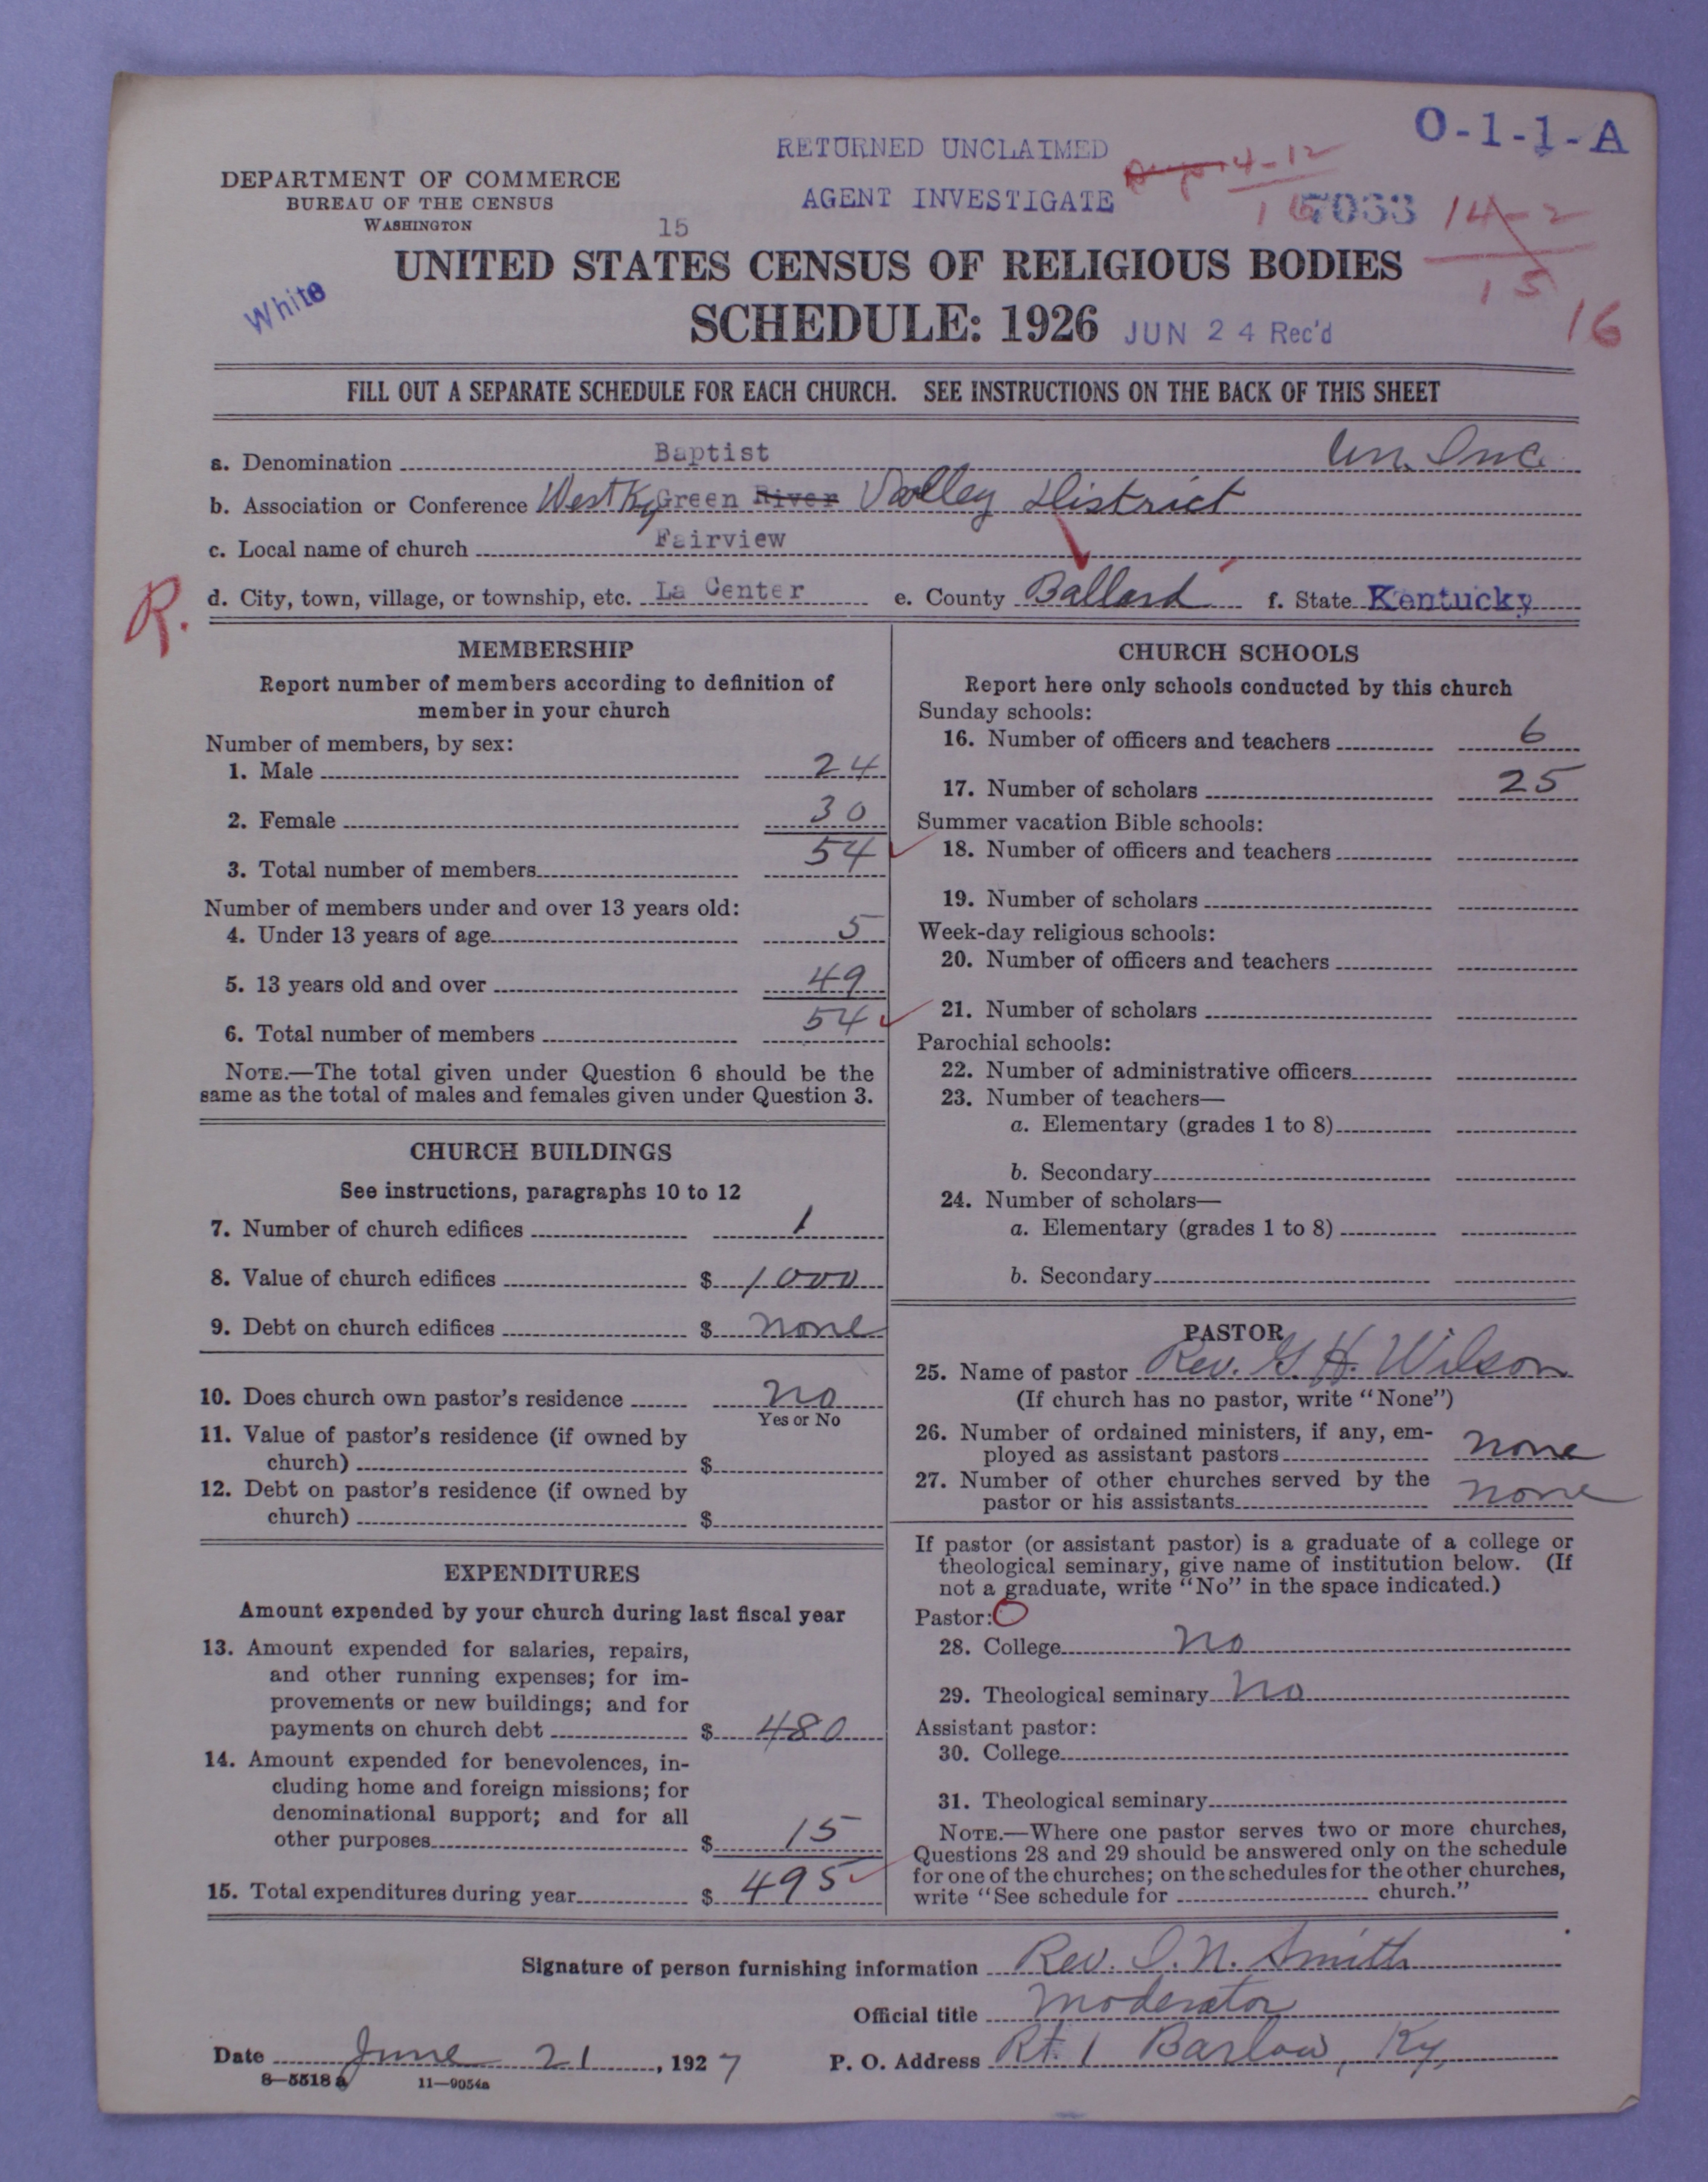 O-1-1-A
RETURNED UNCLAIMED
AGENT INVESTIGATE
4-12
16
7033
14-2
15
16
DEPARTMENT OF COMMERCE
BUREAU OF THE CENSUS
WASHINGTON
15
UNITED STATES CENSUS OF RELIGIOUS BODIES
White
SCHEDULE: 1926 JUN 24 Rec'd
FILL OUT A SEPARATE SCHEDULE FOR EACH CHURCH. SEE INSTRUCTIONS ON THE BACK OF THIS SHEET
a. Denomination Baptist Un. Inc.
b. Association or Conference West Ky Green River Valley District
c. Local name of church Fairview
R.
d. City, town, village, or township, etc. La Center e. County Ballard f. State Kentucky
MEMBERSHIP
Report number of members according to definition of
member in your church
Number of members, by sex:
1. Male 24
2. Female 30
3. Total number of members 54
Number of members under and over 13 years old:
4. Under 13 years of age 5
5. 13 years old and over 49
6. Total number of members 54
NOTE.—The total given under Question 6 should be the
same as the total of males and females given under Question 3.
CHURCH BUILDINGS
See instructions, paragraphs 10 to 12
7. Number of church edifices 1
8. Value of church edifices $ 1000
9. Debt on church edifices $ none
10. Does church own pastor's residence no
Yes or No
11. Value of pastor's residence (if owned by
church) $
12. Debt on pastor's residence (if owned by
church) $
EXPENDITURES
Amount expended by your church during last fiscal year
13. Amount expended for salaries, repairs,
and other running expenses; for im-
provements or new buildings; and for
payments on church debt $ 480
14. Amount expended for benevolences, in-
cluding home and foreign missions; for
denominational support; and for all
other purposes $ 15
15. Total expenditures during year $ 495
CHURCH SCHOOLS
Report here only schools conducted by this church
Sunday schools:
16. Number of officers and teachers 6
17. Number of scholars 25
Summer vacation Bible schools:
18. Number of officers and teachers
19. Number of scholars
Week-day religious schools:
20. Number of officers and teachers
21. Number of scholars
Parochial schools:
22. Number of administrative officers
23. Number of teachers—
a. Elementary (grades 1 to 8)
b. Secondary
24. Number of scholars—
a. Elementary (grades 1 to 8)
b. Secondary
PASTOR
25. Name of pastor Rev. G. H. Wilson
(If church has no pastor, write "None")
26. Number of ordained ministers, if any, em-
ployed as assistant pastors none
27. Number of other churches served by the
pastor or his assistants none
If pastor (or assistant pastor) is a graduate of a college or
theological seminary, give name of institution below. (If
not a graduate, write "No" in the space indicated.)
Pastor:
28. College no
29. Theological seminary no
Assistant pastor:
30. College
31. Theological seminary
NOTE.—Where one pastor serves two or more churches,
Questions 28 and 29 should be answered only on the schedule
for one of the churches; on the schedules for the other churches,
write "See schedule for church."
Signature of person furnishing information Rev. I. N. Smith
Official title Moderator
Date June 21, 1927 P. O. Address Rt. 1 Barlow, Ky,
8-5518 a 11-9054a